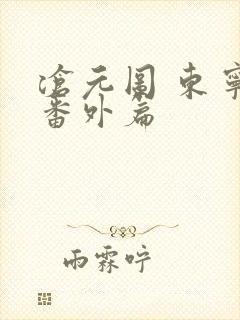 滄元圖 東寧
番外篇
雨霖咛